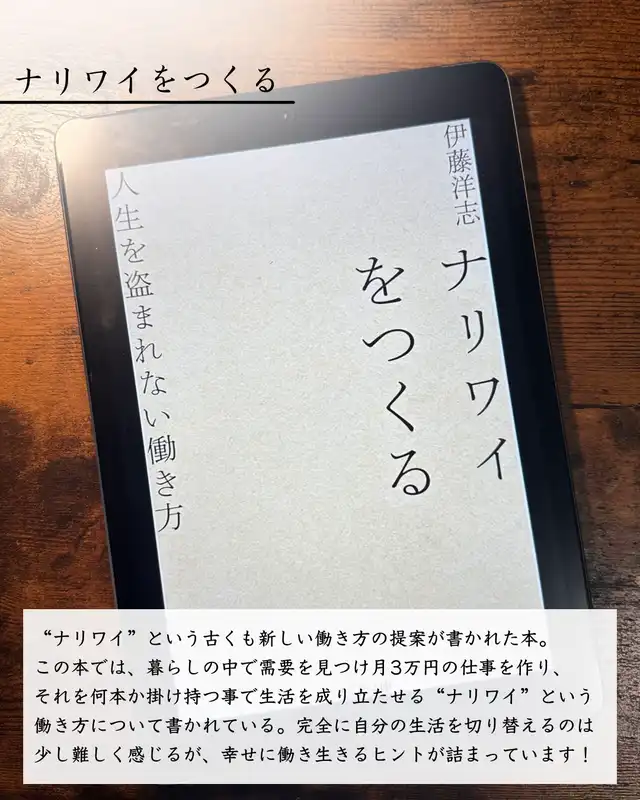 ナリワイをつくる
伊藤洋志
ナリワイ
をつくる
人生を盗まれない働き方
“ナリワイ”という古くも新しい働き方の提案が書かれた本。
この本では、暮らしの中で需要を見つけ月3万円の仕事を作り、
それを何本か掛け持つ事で生活を成り立たせる“ナリワイ”という
働き方について書かれている。完全に自分の生活を切り替えるのは
少し難しく感じるが、幸せに働き生きるヒントが詰まっています！